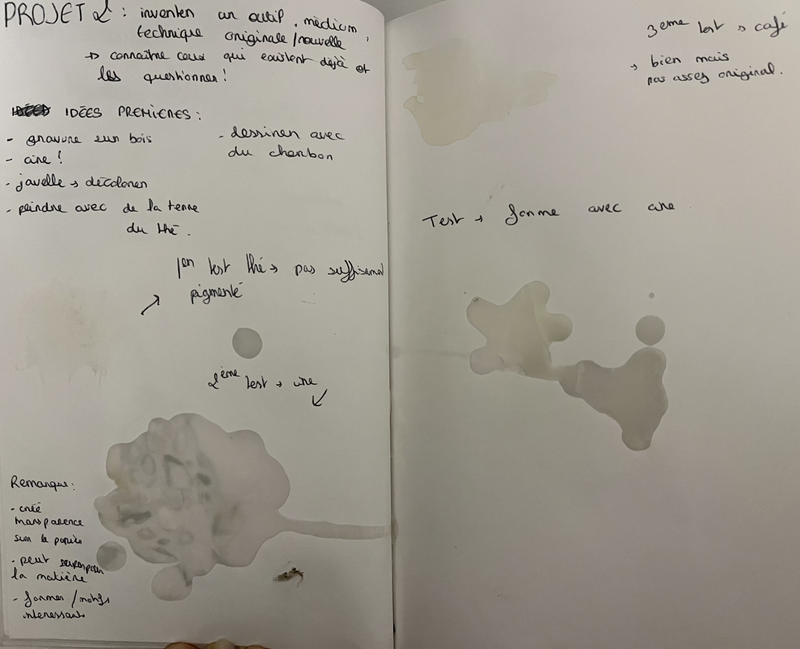 PROJET 2 : inventer un outil, médium,
technique originale/nouvelle
→ connaître ceux qui existent déjà et
les questionner !
IDÉES PREMIÈRES :
- gravure sur bois
- cire !
- javelle → décolorer
- peindre avec de la terre
du thé.
- dessiner avec
du charbon
1er test thé → pas suffisamment
pigmenté
2ème test → cire
Remarque :
- créé
transparence
sur le papier
- peut
la matière
- formes / motifs
intéressants
3ème test → café
→ bien mais
pas assez original.
Test → forme avec cire